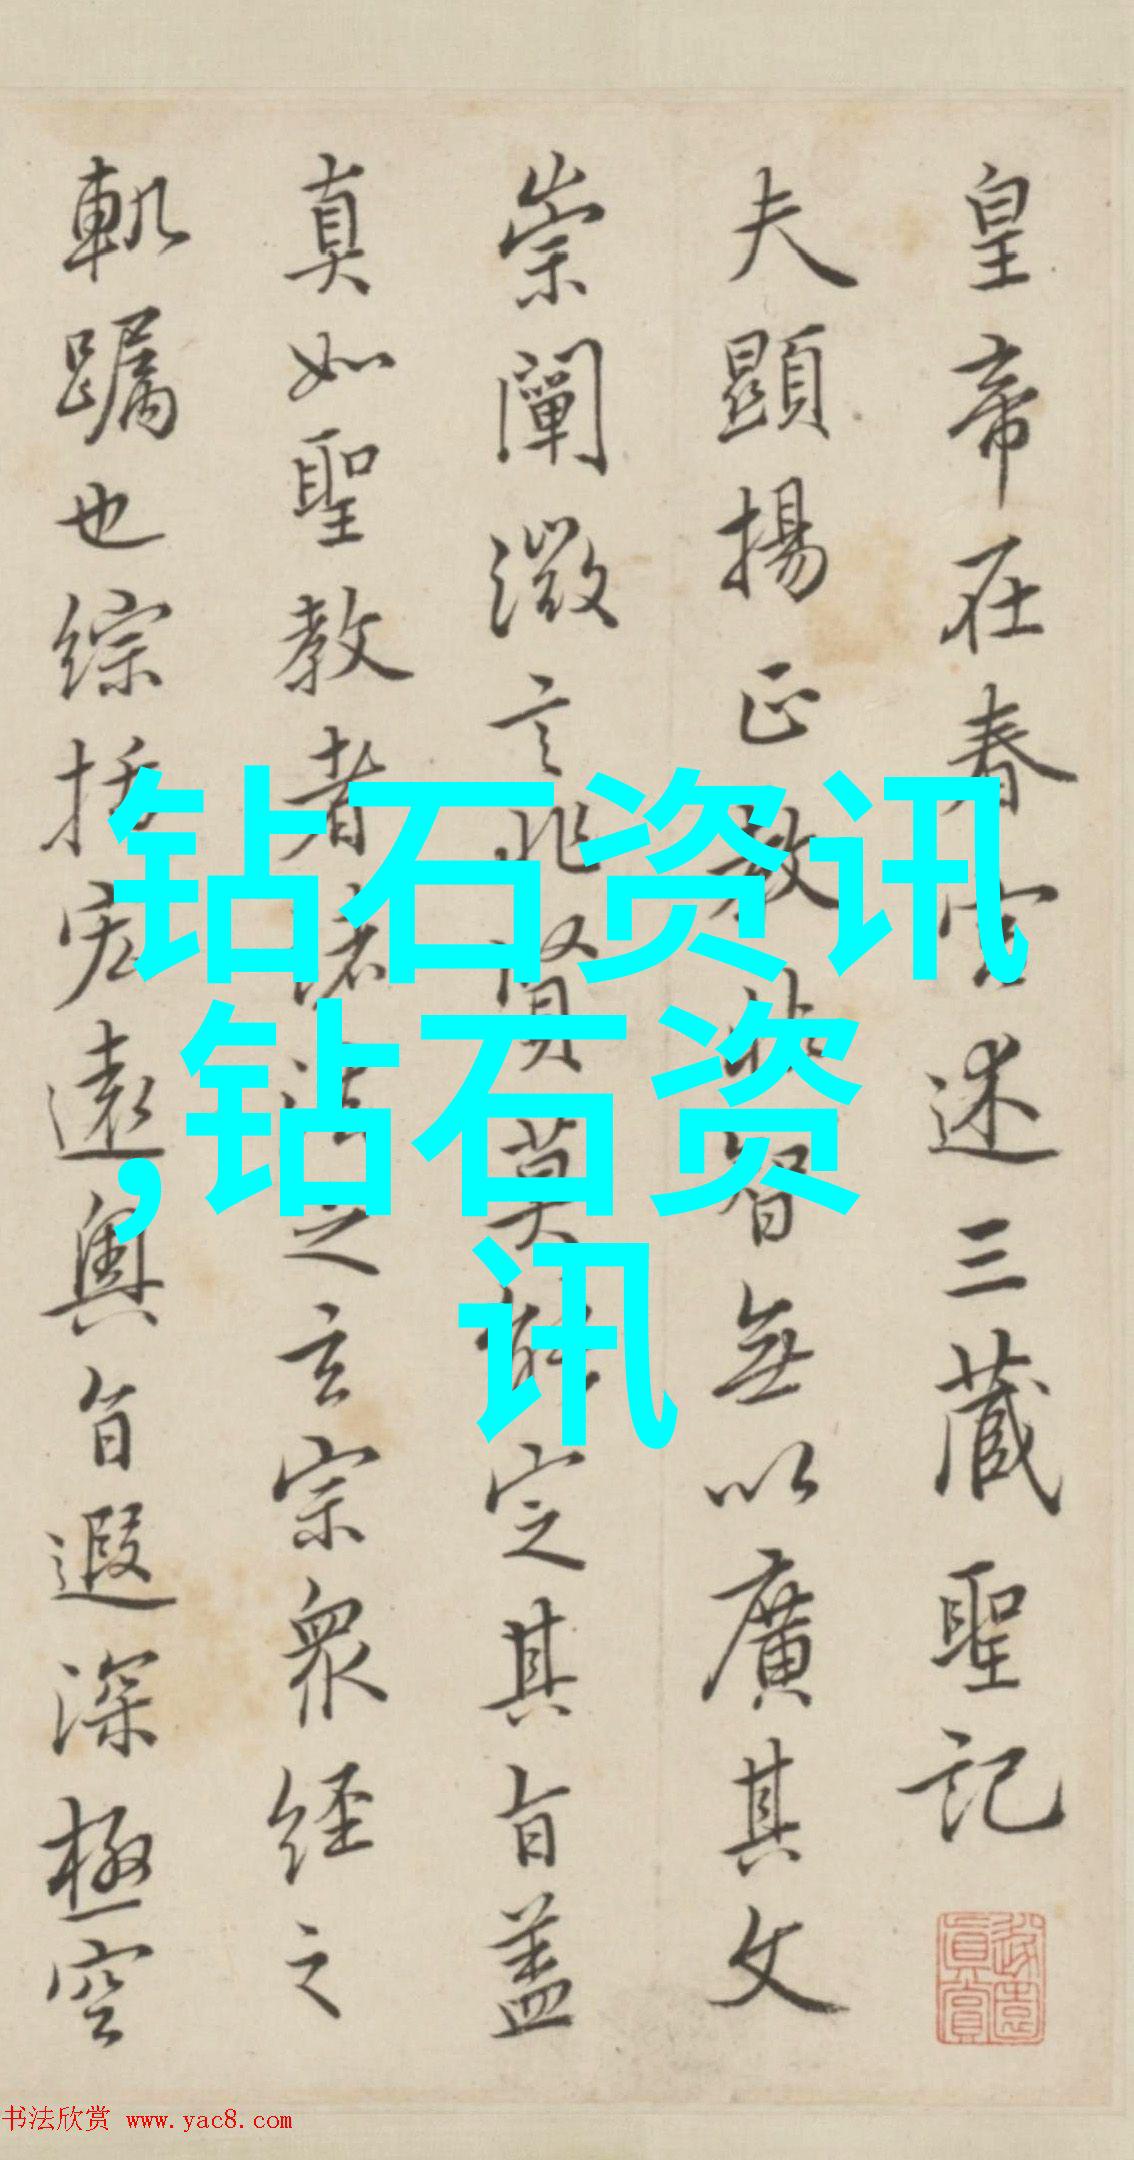 皇帝在春宮述三藏聖記
夫顯揚正教非智無以廣其文
崇闡微言非賢莫能定其旨蓋
真如聖教者諸法之玄宗眾經之
軌躅也綜括宏遠奧旨遐深極空
钻石资讯
,钻石资
讯
书法欣赏 www.yac8.com